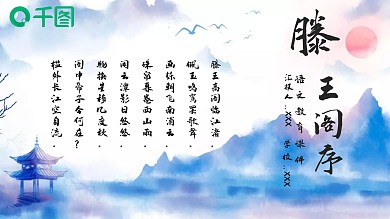 千图
滕王阁序
语文教育课件
汇报人:XXX 学校:XXX
滕王高阁临江渚,
佩玉鸣鸾罢歌舞。
画栋朝飞南浦云,
珠帘暮卷西山雨。
闲云潭影日悠悠,
物换星移几度秋。
阁中帝子今何在?
槛外长江空自流。